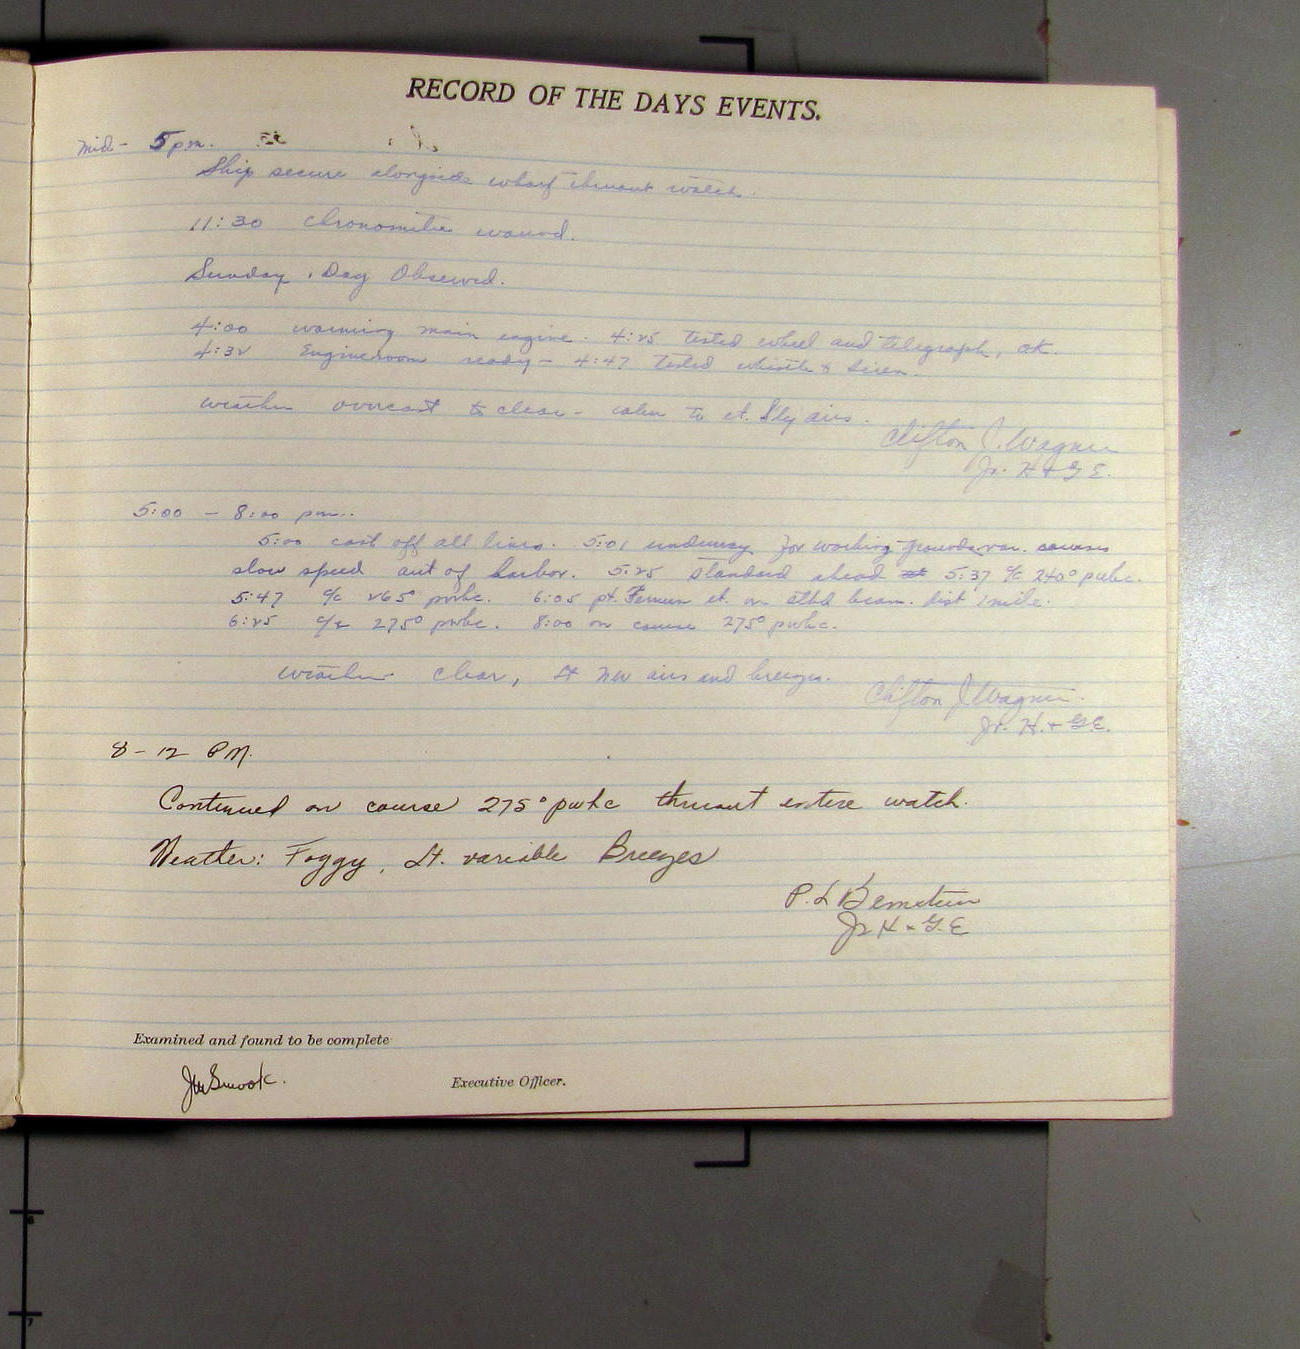 RECORD OF THE DAYS EVENTS.
Mid - 5 pm.
Ship secure alongside wharf thruout watch.
11:30 chronometer wound.
Sunday. Day Observed.
4:00 warming main engine. 4:25 tested wheel and telegraph, ok.
4:32 Engineroom ready - 4:47 tested whistle & siren.
Weather overcast to clear - calm to lt. airs.
Clifton J. Wagner
Jr. H & G E.
5:00 - 8:00 pm.
5:00 cast off all lines. 5:01 underway for working grounds var. courses
slow speed out of harbor. 5:25 standard ahead 5:37 c/c 240° pwhc.
5:47 c/c 265° pwhc. 6:05 pt. Fermin lt. on stbd beam. dist 1 mile.
6:25 c/c 275° pwhc. 8:00 on course 275° pwhc.
Weather clear, lt airs and breezes.
Clifton J. Wagner
Jr. H. & G E.
8 - 12 PM.
Continued on course 275° pwhc thruout entire watch.
Weather: Foggy, Lt. variable Breezes
P. L Bernstein
Jr H & G. E
Examined and found to be complete
Executive Officer.